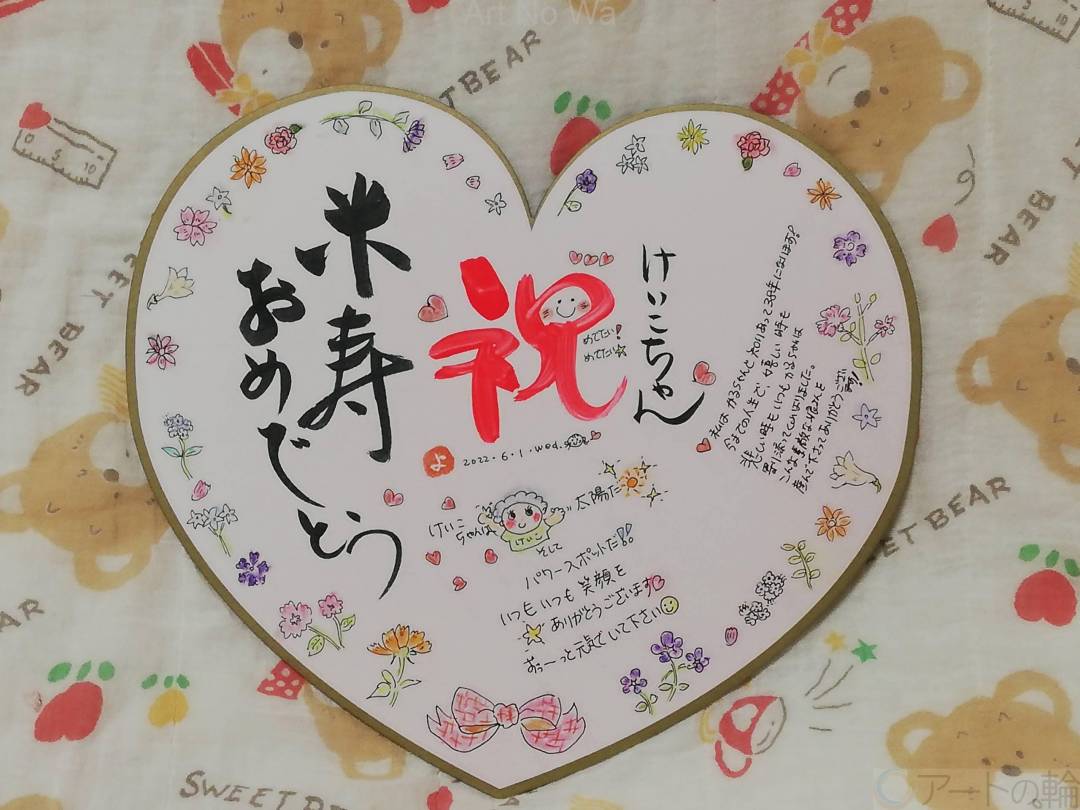 Art No Wa
けいこちゃん
祝
めでたい!
めでたい☆
米寿
おめでとう
よ
2022.6.1.wed.
私は かるちゃんと知りあって38年になります。
今までの人生で、嬉しい時も
悲しい時もいつもかるちゃんは
寄り添ってくれました。
こんな素敵な娘さんを
産んで下さってありがとうござい
ます!!
けいこ
ちゃんは
太陽だ
けいこ
そして
パワースポットだ!!
いつもいつも笑顔を
ありがとうございます
ずっ〜っと元気でいて下さい
TBEAR
SWEET
BEAR
BEAR
BEAR
SWEET BEAR
SWEET BEAR
0 5 10
©アートの輪